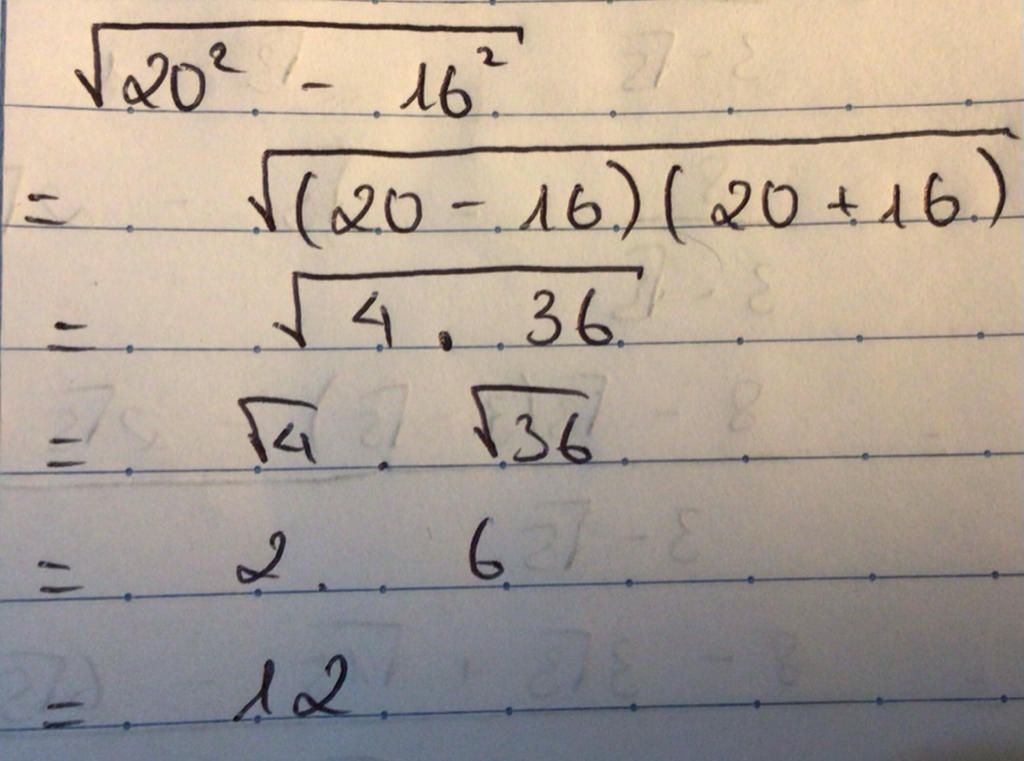 √(20² - 16²)
= √((20 - 16)(20 + 16))
= √(4 . 36)
= √4 . √36
= 2 . 6
= 12